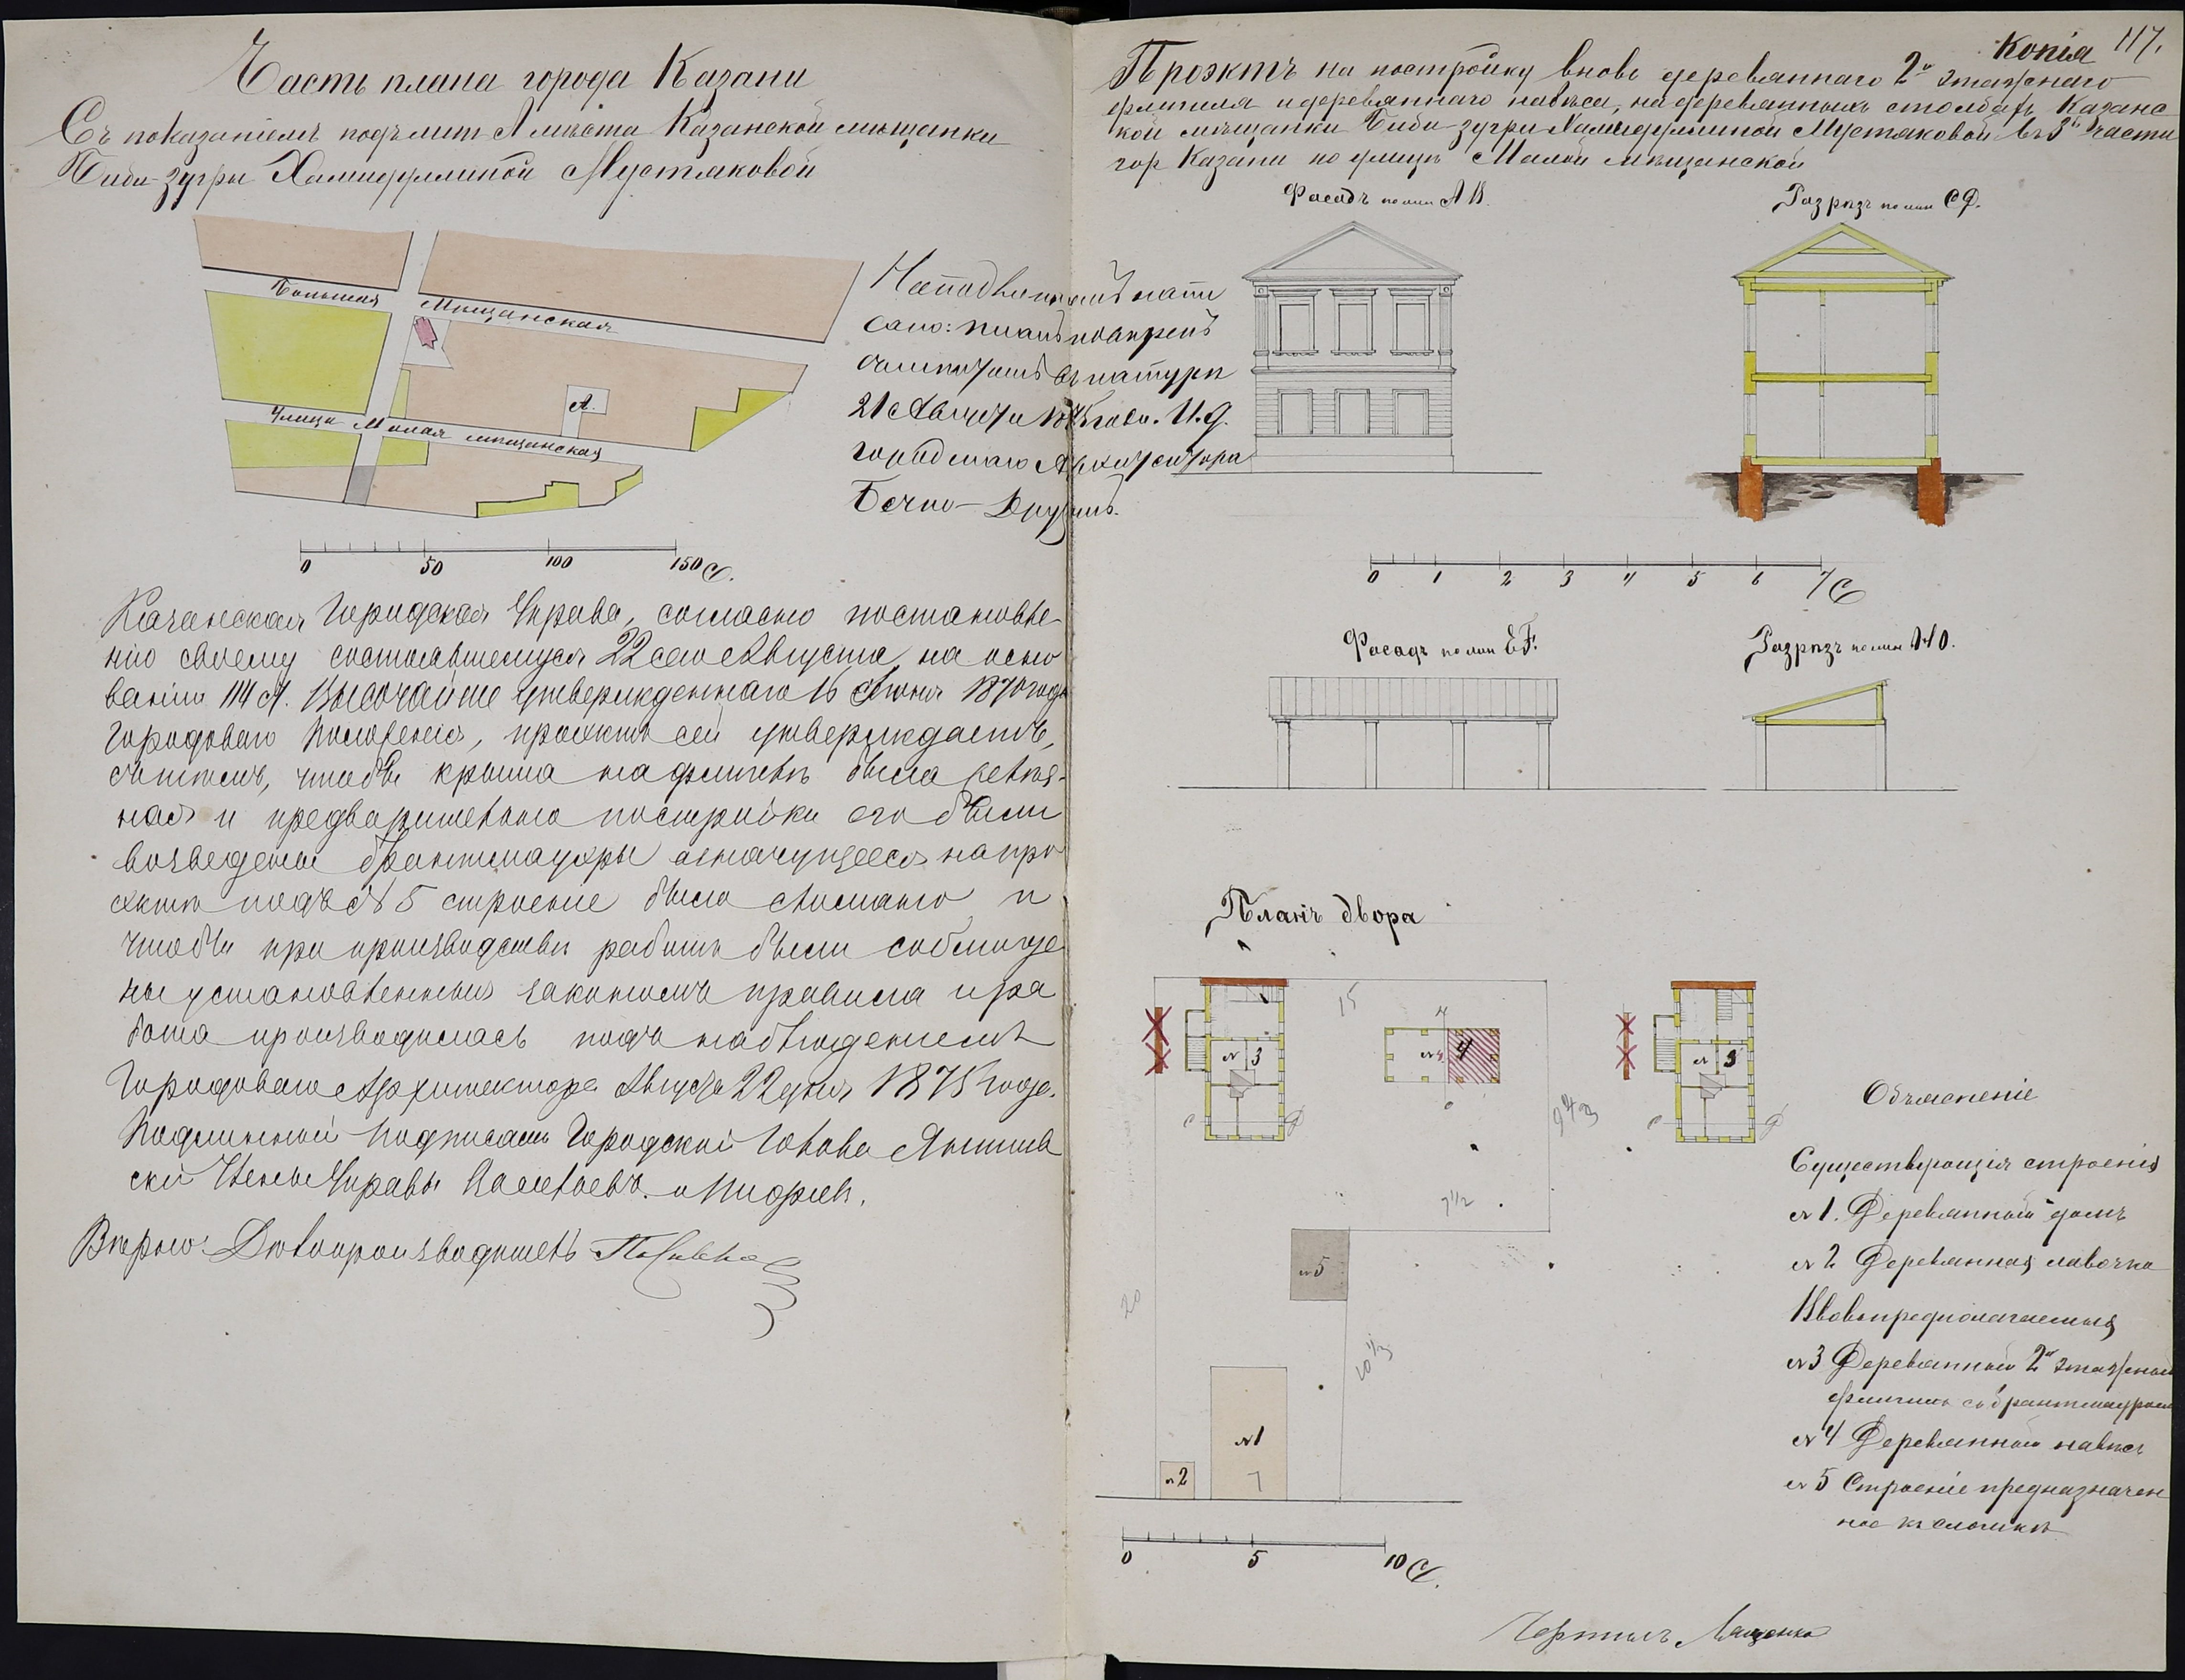 Часть плана города Казани
Съ показанiемъ подъ лит. А мѣста Казанской мѣщанки
Биби-зугры Хамидуллиной Мустаковой
Большая Мѣщанская
А.
Улица Малая мѣщанская
0 50 100 150 С.
На подлинномъ напи
сано: планъ повѣренъ
въ натурѣ
21 Августа 1875 года. И. д.
городскаго Архитектора
Казанская Городская Управа, согласно постановле-
нiю своему состоявшемуся 22 сего Августа, на осно
ванiи 114 ст. Высочайше утвержденнаго 16 Iюня 1870 года
Городоваго Положенiя, проэктъ сей утверждаетъ,
съ тѣмъ, чтобы крыша на флигелѣ была
ная и предварительно постройки его были
возведены брантмауеры значущееся на про
эктѣ подъ № 5 строенiе было сломано и
чтобы при производствѣ работъ были соблюде
ны установленныя закономъ правила и ра
бота производилась подъ наблюденiемъ
Городоваго Архитектора Августа 22 дня 1875 года.
Подлинный подписали Городской Голова Янишев
скiй Члены Управы и
Вѣрно: Дѣлопроизводитель
Копiя 117.
Проэктъ на постройку вновь деревяннаго 2хъ этажнаго
флигиля и деревяннаго навѣса, на деревянныхъ столбахъ Казанс
кой мѣщанки Биби-зугры Хамидуллиной Мустаковой въ 3й части
гор Казани по улицѣ Малой мѣщанской
Фасадъ по лин АВ.
Разрѣзъ по лин СД.
0 1 2 3 4 5 6 7 С
Фасадъ по лин EF.
Разрѣзъ по лин НО.
Планъ двора
15
№ 3
№ 4 4
№ 3
9 2/3
7 1/2
№ 5
20
10 1/3
№ 1
7
№ 2
0 5 10 С.
Объясненiе
Существующiя строенiя
№ 1. Деревянный домъ
№ 2 Деревянная лавочка
Вновь предполагаемыя
№ 3 Деревянный 2хъ этажный
флигиль съ брантмауромъ
№ 4 Деревянный навѣсъ
№ 5 Строенiе предназначен
ное къ сломкѣ
Чертилъ Мащенко